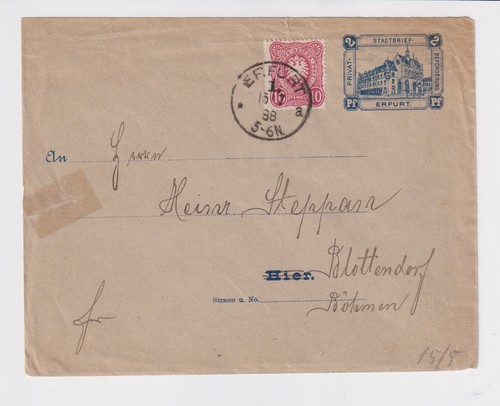 2 STADTBRIEF- 2
PRIVAT- BEFÖRDERUNG
Pf ERFURT. Pf
10 10
ERFURT
1.
88
a
5-6N.
An Herrn
Heinr. Steppan
Hier. Blottendorf
Strasse u. No. Böhmen
fr
15/5